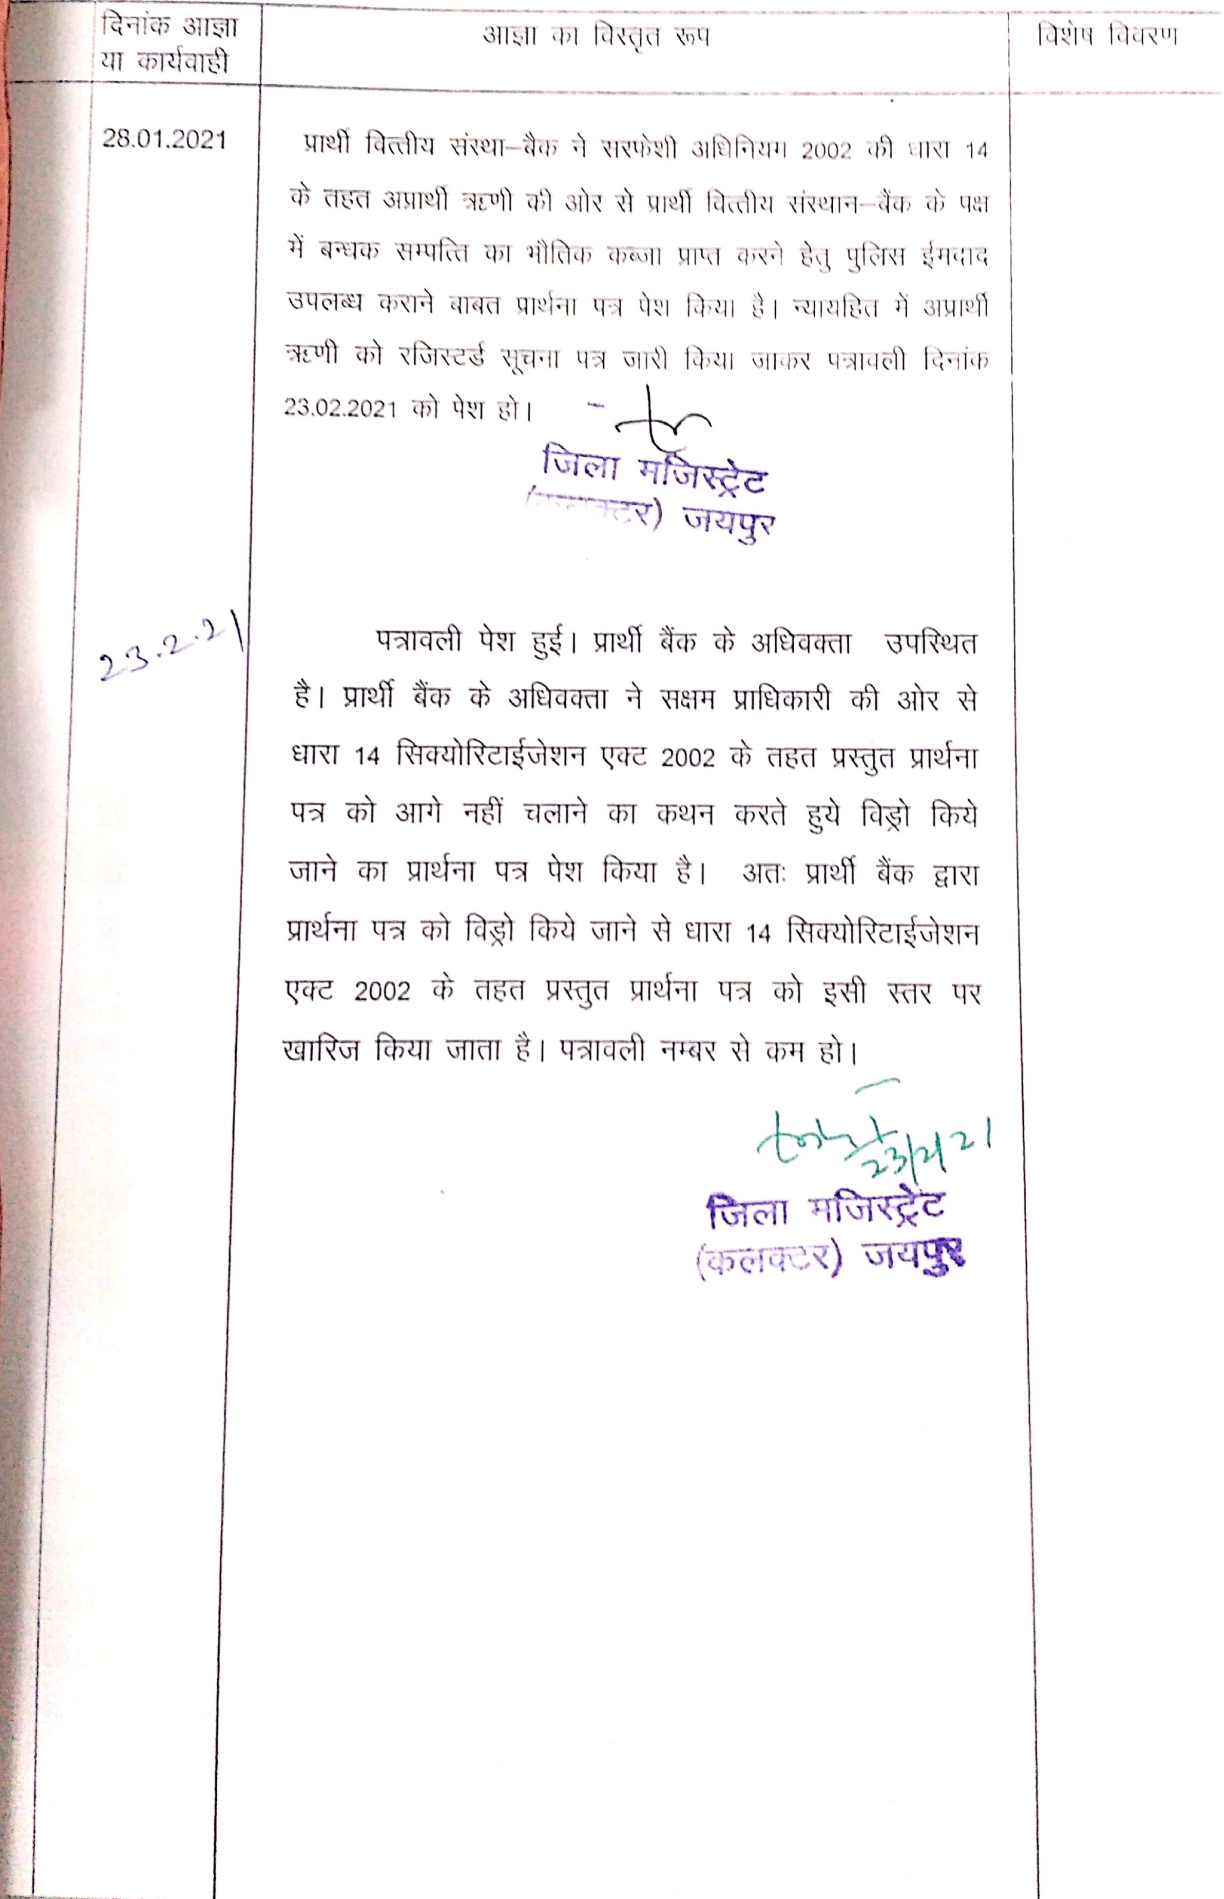 दिनांक आज्ञा
या कार्यवाही
आज्ञा का विस्तृत रूप
विशेष विवरण
28.01.2021
प्रार्थी वित्तीय संस्था–बैक ने सरफेशी अधिनियम 2002 की धारा 14
के तहत अप्रार्थी ऋणी की ओर से प्रार्थी वित्तीय संस्थान–बैंक के पक्ष
में बन्धक सम्पत्ति का भौतिक कब्जा प्राप्त करने हेतु पुलिस ईमदाद
उपलब्ध कराने बाबत प्रार्थना पत्र पेश किया है। न्यायहित में अप्रार्थी
ऋणी को रजिस्टर्ड सूचना पत्र जारी किया जाकर पत्रावली दिनांक
23.02.2021 को पेश हो।
जिला मजिस्ट्रेट
जयपुर
23.2.21
पत्रावली पेश हुई। प्रार्थी बैंक के अधिवक्ता उपस्थित
है। प्रार्थी बैंक के अधिवक्ता ने सक्षम प्राधिकारी की ओर से
धारा 14 सिक्योरिटाईजेशन एक्ट 2002 के तहत प्रस्तुत प्रार्थना
पत्र को आगे नहीं चलाने का कथन करते हुये विड्रो किये
जाने का प्रार्थना पत्र पेश किया है। अतः प्रार्थी बैंक द्वारा
प्रार्थना पत्र को विड्रो किये जाने से धारा 14 सिक्योरिटाईजेशन
एक्ट 2002 के तहत प्रस्तुत प्रार्थना पत्र को इसी स्तर पर
खारिज किया जाता है। पत्रावली नम्बर से कम हो।
23/2/21
जिला मजिस्ट्रेट
(कलक्टर) जयपुर